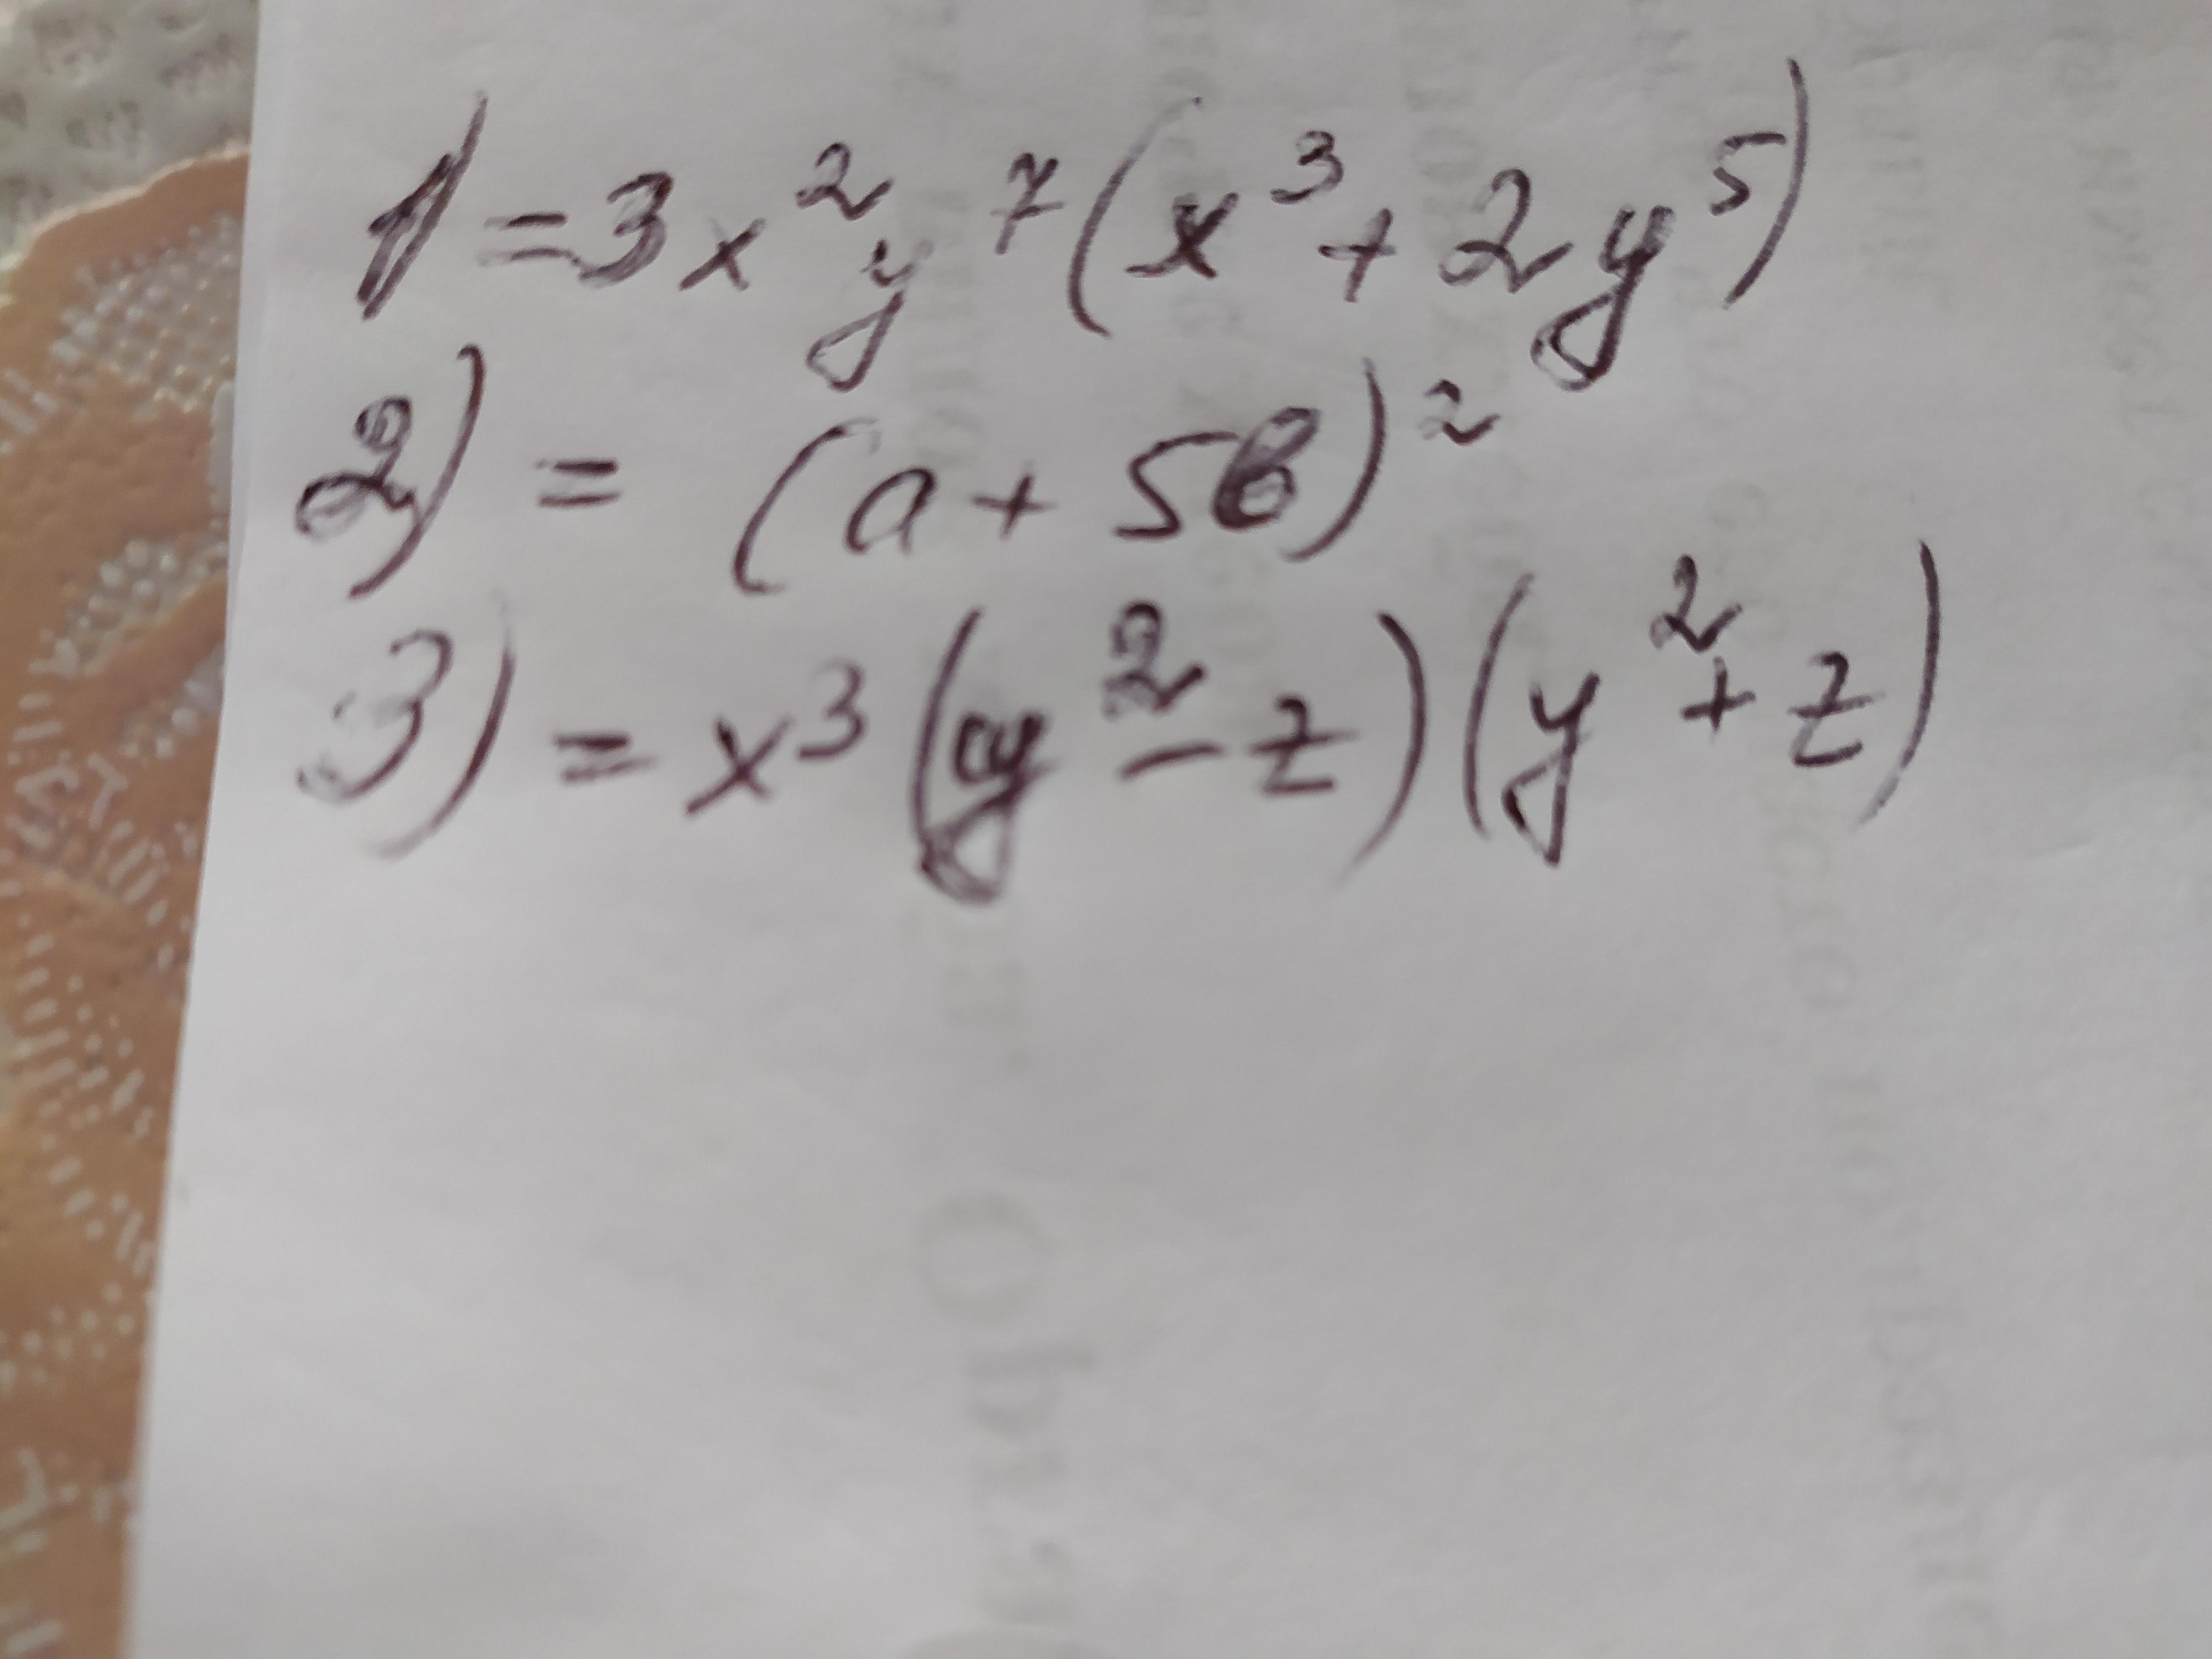 1) = 3x²y⁷(x³ + 2y⁵)
2) = (a + 5b)²
3) = x³(y² - z)(y² + z)